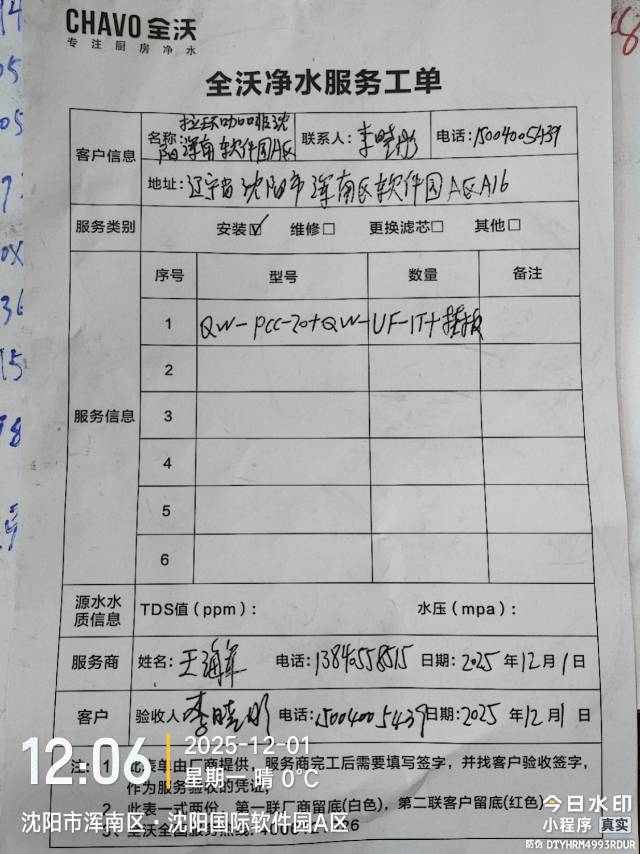 CHAVO 全沃
专注厨房净水
全沃净水服务工单
客户信息
名称:拉环咖啡沈阳浑南软件园A区
联系人:李晓彤
电话:15004005439
地址:辽宁省沈阳市浑南区软件园A区A16
服务类别 安装☑ 维修□ 更换滤芯□ 其他□
服务信息
序号 型号 数量 备注
1 QW-PCC-20+QW-UF-1T+挂板
2
3
4
5
6
源水水质信息 TDS值(ppm): 水压(mpa):
服务商 姓名:王海军 电话:13840558515 日期:2025年12月1日
客户 验收人李晓彤 电话:15004005439日期:2025年12月1日
注:1、此表单由厂商提供,服务商完工后需要填写签字,并找客户验收签字,
作为服务验收的凭证;
2、此表一式两份,第一联厂商留底(白色),第二联客户留底(红色)
3、全沃全国服务热线:
12:06
2025-12-01
星期一 晴 0℃
沈阳市浑南区·沈阳国际软件园A区
今日水印
小程序 真实
防伪 DTYHRM4993RDUR